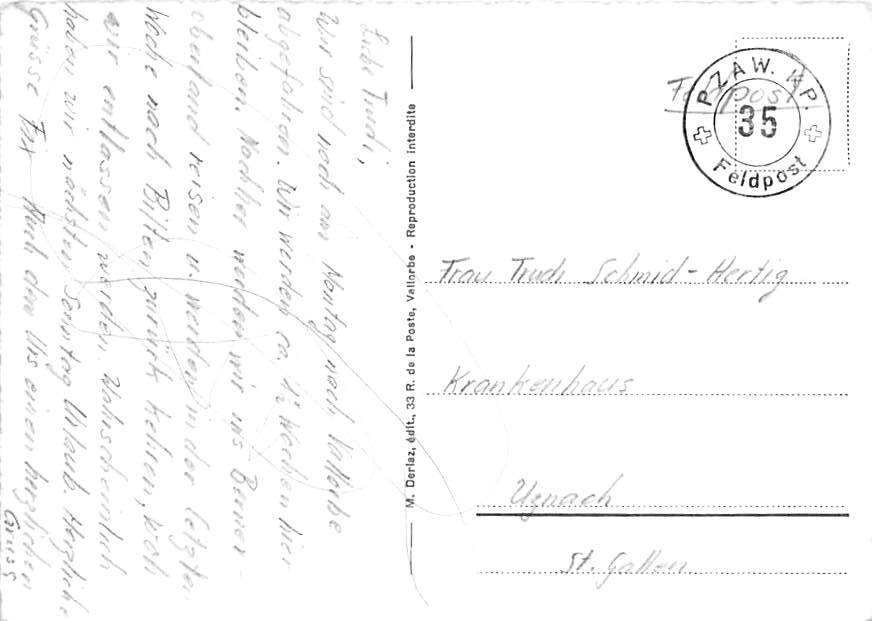 Liebe Trudi,
Wir sind noch am Montag nach Vallorbe
abgefahren. Wir werden ca. 1½ Wochen hier
bleiben. Nachher werden wir ins Berner-
oberland reisen u. werden in der letzten
Woche nach Bilten zurück kehren, wo
wir entlassen werden. Wahrscheinlich
haben wir nächsten Sonntag Urlaub. Herzliche
Grüsse Auch den Urs einen herzlichen
Gruss
M. Deriaz, édit., 33 R. de la Poste, Vallorbe - Reproduction interdite
Feldpost
PZAW. KP.
35
Feldpost
Frau Trudi Schmid-Hertig
Krankenhaus
Uznach
St. Gallen